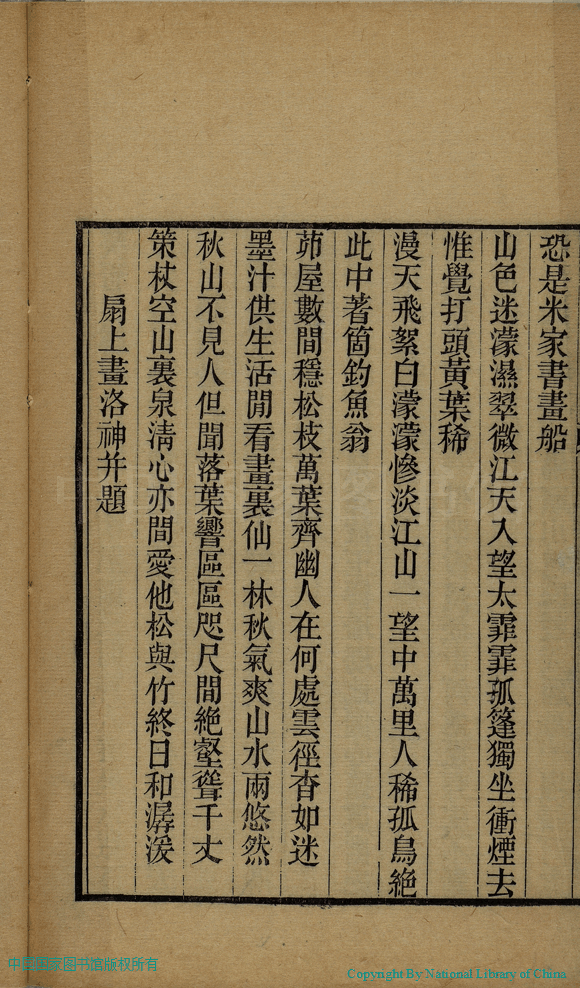 恐是米家書畫船
山色迷濛濕翠微江天入望太霏霏孤篷獨坐衝煙去
惟覺打頭黃葉稀
漫天飛絮白濛濛慘淡江山一望中萬里人稀孤鳥絶
此中著箇釣魚翁
茆屋數間穩松枝萬葉齊幽人在何處雲徑杳如迷
墨汁供生活閒看畫裏仙一林秋氣爽山水雨悠然
秋山不見人但聞落葉響區區咫尺間絶壑聳千丈
策杖空山裏泉淸心亦間愛他松與竹終日和潺湲
扇上畫洛神并題
中国国家图书馆版权所有
Copyright By National Library of China